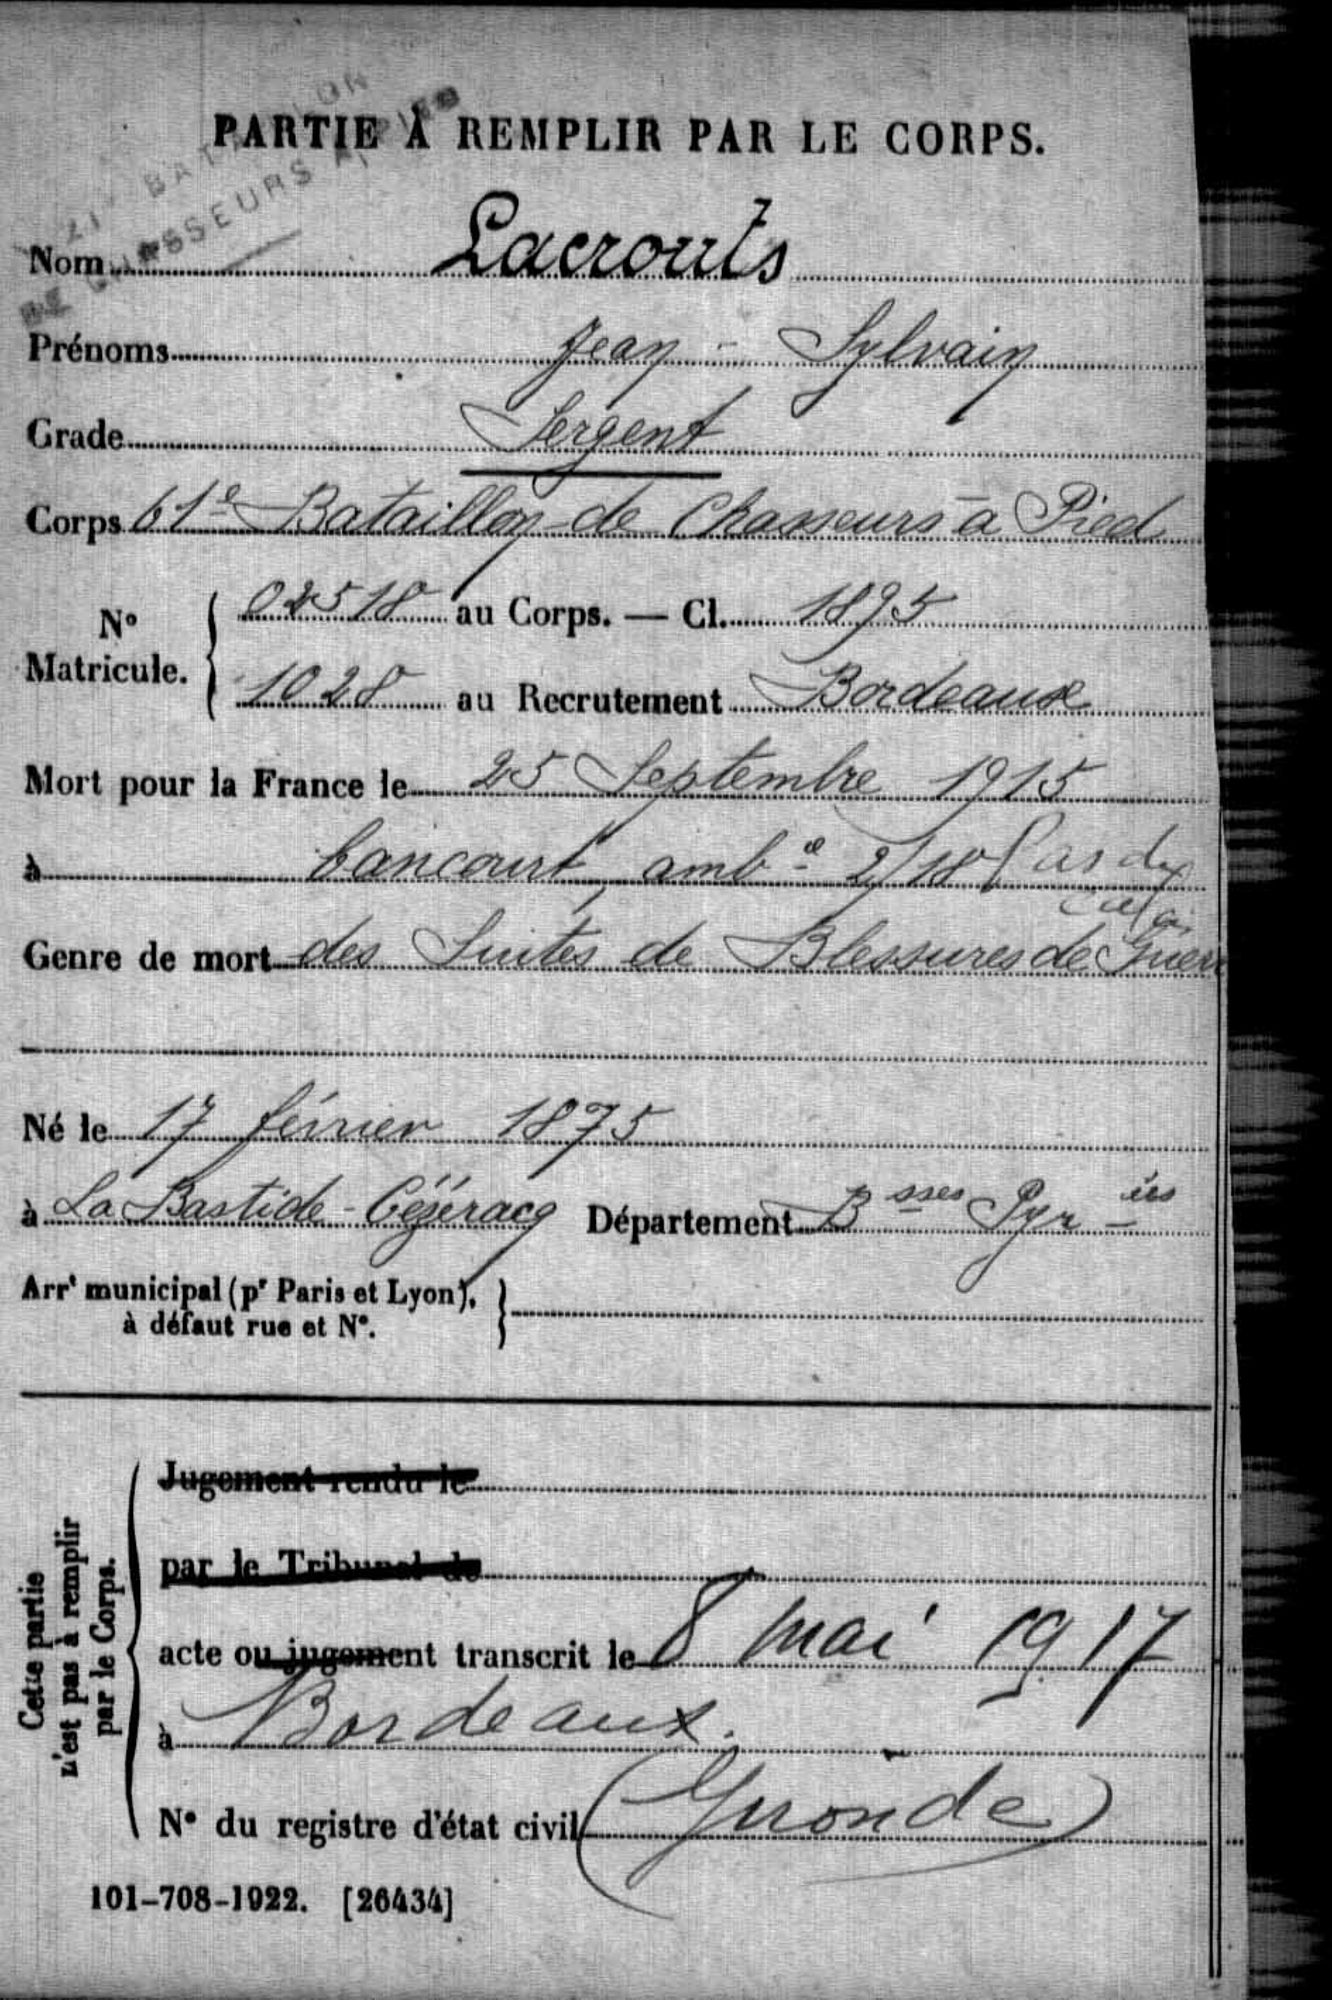 21e BATAILLON
DE CHASSEURS A PIED
PARTIE À REMPLIR PAR LE CORPS.
Nom Lacrouts
Prénoms Jean - Sylvain
Grade Sergent
Corps 61e Bataillon de Chasseurs à Pied
No Matricule. 02518 au Corps. — Cl. 1895
1028 au Recrutement Bordeaux
Mort pour la France le 25 Septembre 1915
à Cancourt, ambce 2/18 Pas de
Calais
Genre de mort des Suites de Blessures de Guerre
Né le 17 février 1875
à La Bastide-Cézéracq Département Bsses Pyrées
Arrt municipal (pr Paris et Lyon),
à défaut rue et No.
Cette partie
n'est pas à remplir
par le Corps.
Jugement rendu le
par le Tribunal de
acte ou jugement transcrit le 8 mai 1917
à Bordeaux.
No du registre d'état civil (Gironde)
101-708-1922. [26434]